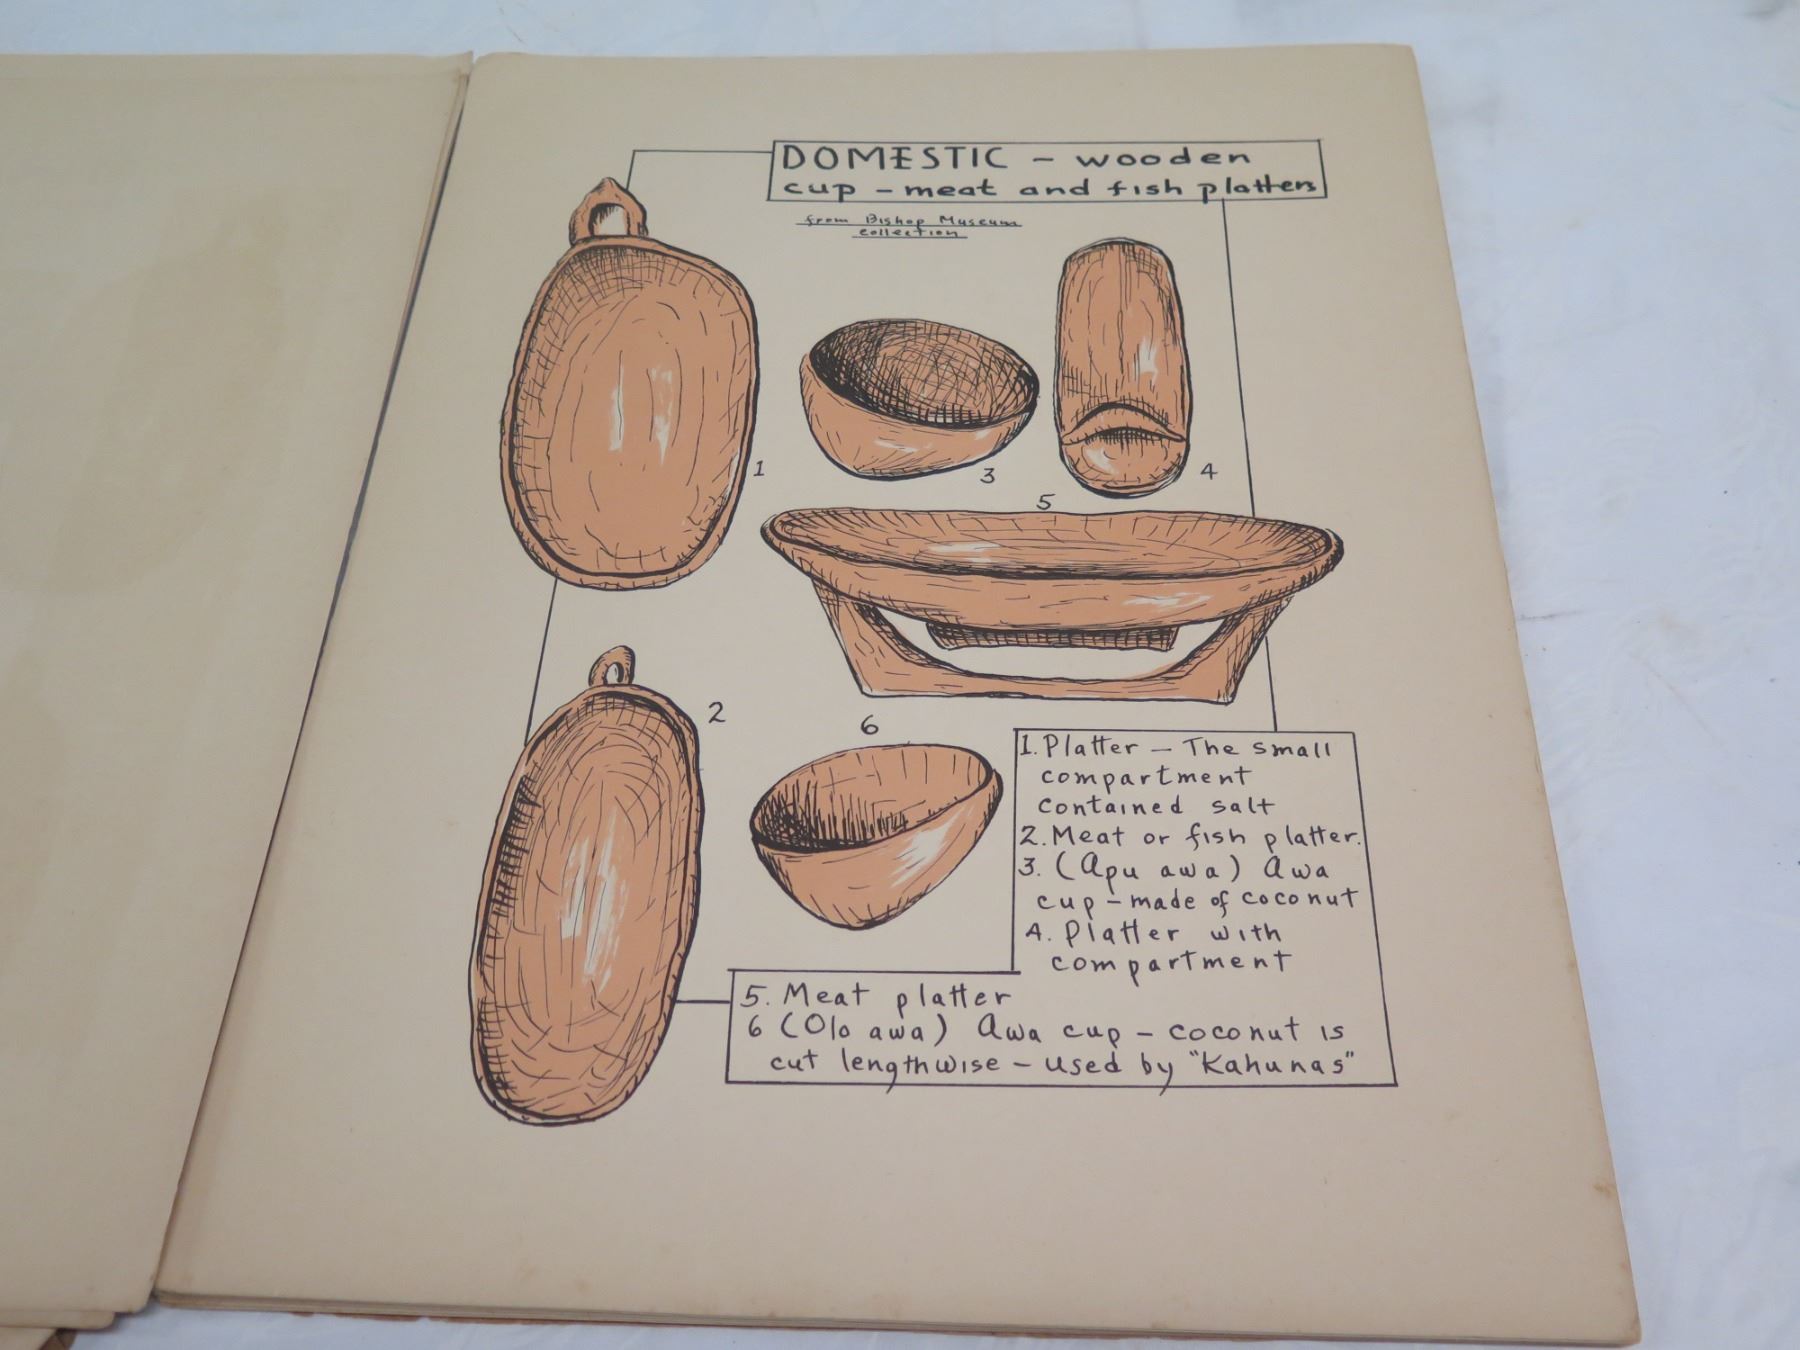 DOMESTIC - wooden
cup - meat and fish platters
from Bishop Museum
collection
1
3
4
5
2
6
1. Platter - The small
compartment
contained salt
2. Meat or fish platter.
3. (Apu awa) Awa
cup - made of coconut
4. Platter with
compartment
5. Meat platter
6 (Olo awa) Awa cup - coconut is
cut lengthwise - used by "Kahunas"